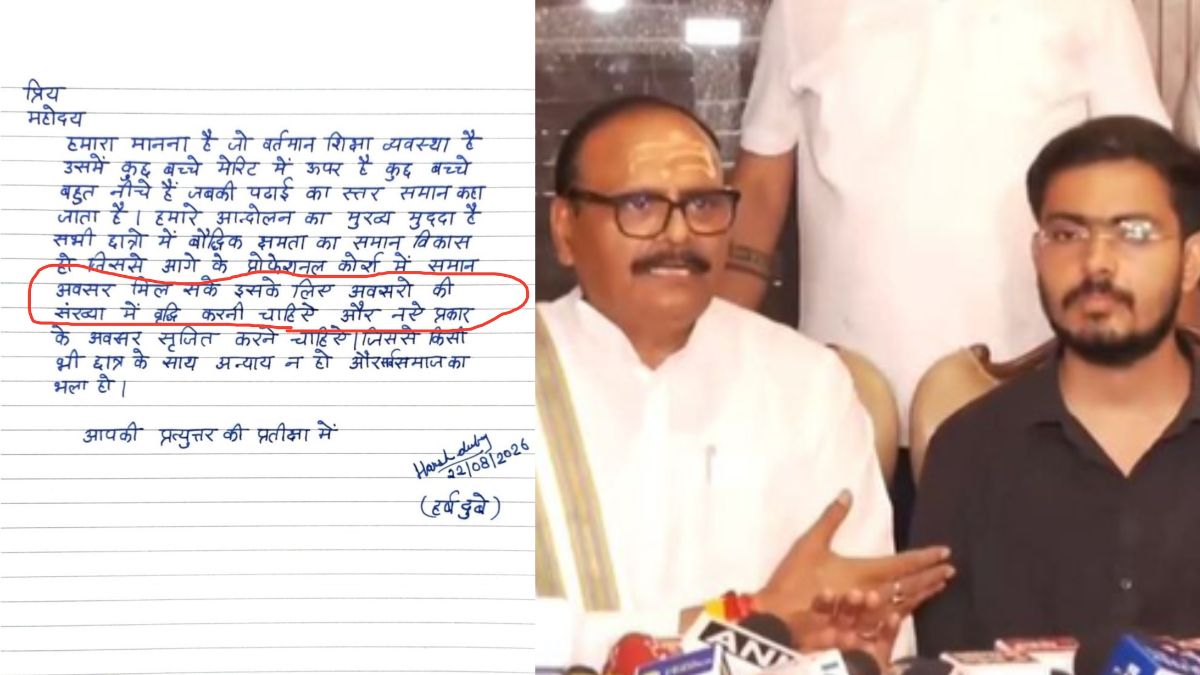 प्रिय
महोदय
हमारा मानना है जो वर्तमान शिक्षा व्यवस्था है
उसमें कुछ बच्चे मेरिट में ऊपर है कुछ बच्चे
बहुत नीचे हैं जबकी पढाई का स्तर समान कहा
जाता है। हमारे आन्दोलन का मुख्य मुद्दा है
सभी छात्रो में बौद्धिक क्षमता का समान विकास
हो जिससे आगे के प्रोफेशनल कोर्स में समान
अवसर मिल सके इसके लिए अवसरो की
संख्या में वृद्धि करनी चाहिये और नये प्रकार
के अवसर सृजित करने चाहिये।जिससे किसी
भी छात्र के साथ अन्याय न हो और सर्वसमाज का
भला हो।
आपकी प्रत्युत्तर की प्रतीक्षा में
Harsh dubey
22/08/2026
(हर्ष दुबे)
ANI